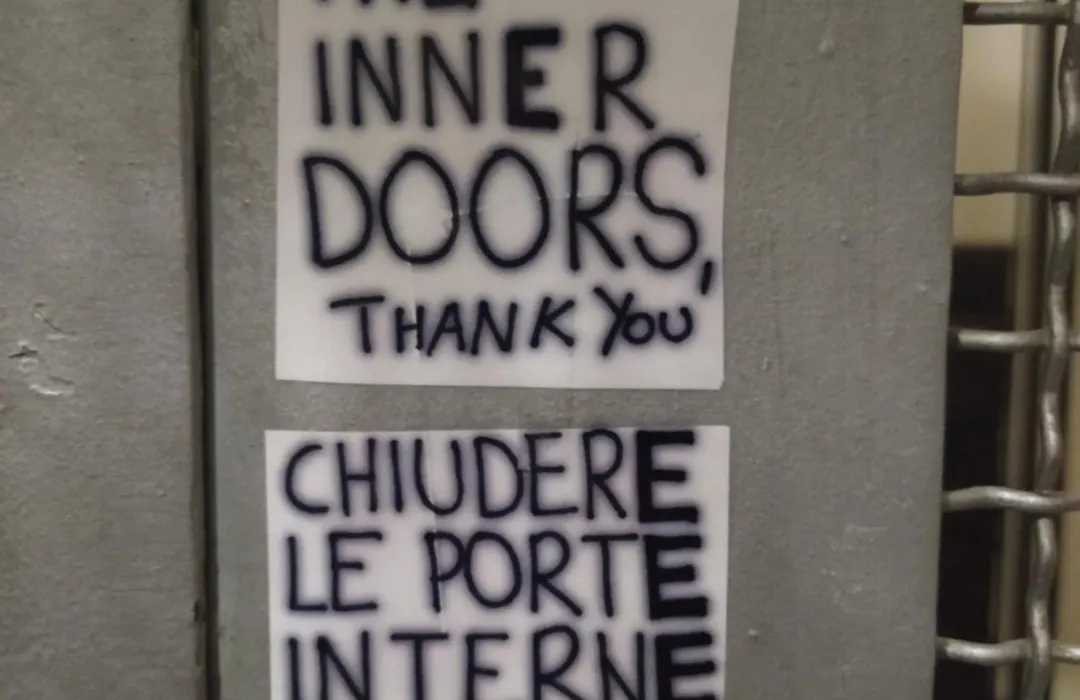 INNER
DOORS,
THANK YOU
CHIUDERE
LE PORTE
INTERNE